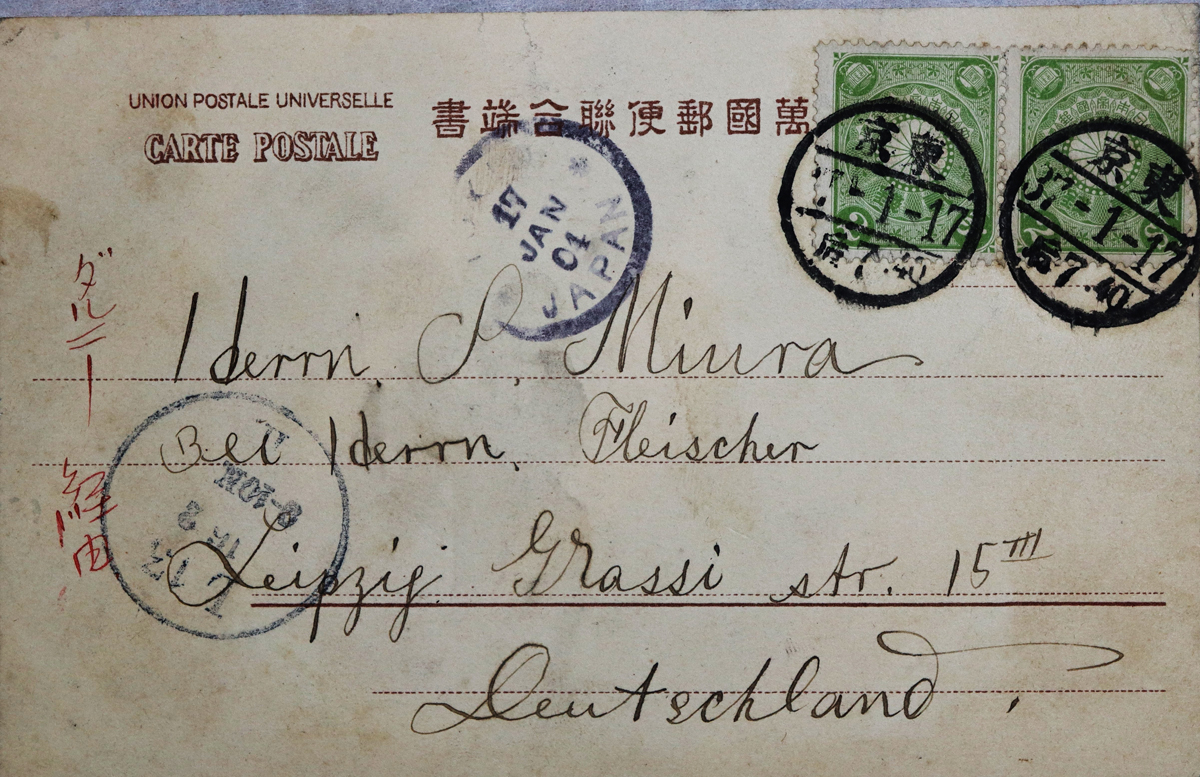 UNION POSTALE UNIVERSELLE
CARTE POSTALE
書端合聯便郵國萬
京東
1-17
后7.40
京東
37-1-17
后7.40
17
JAN
04
JAPAN
ダルニー経由
Herrn, S, Miura
Bei Herrn, Fleischer
Leipzig, Grassi str. 15 III
Deutschland.